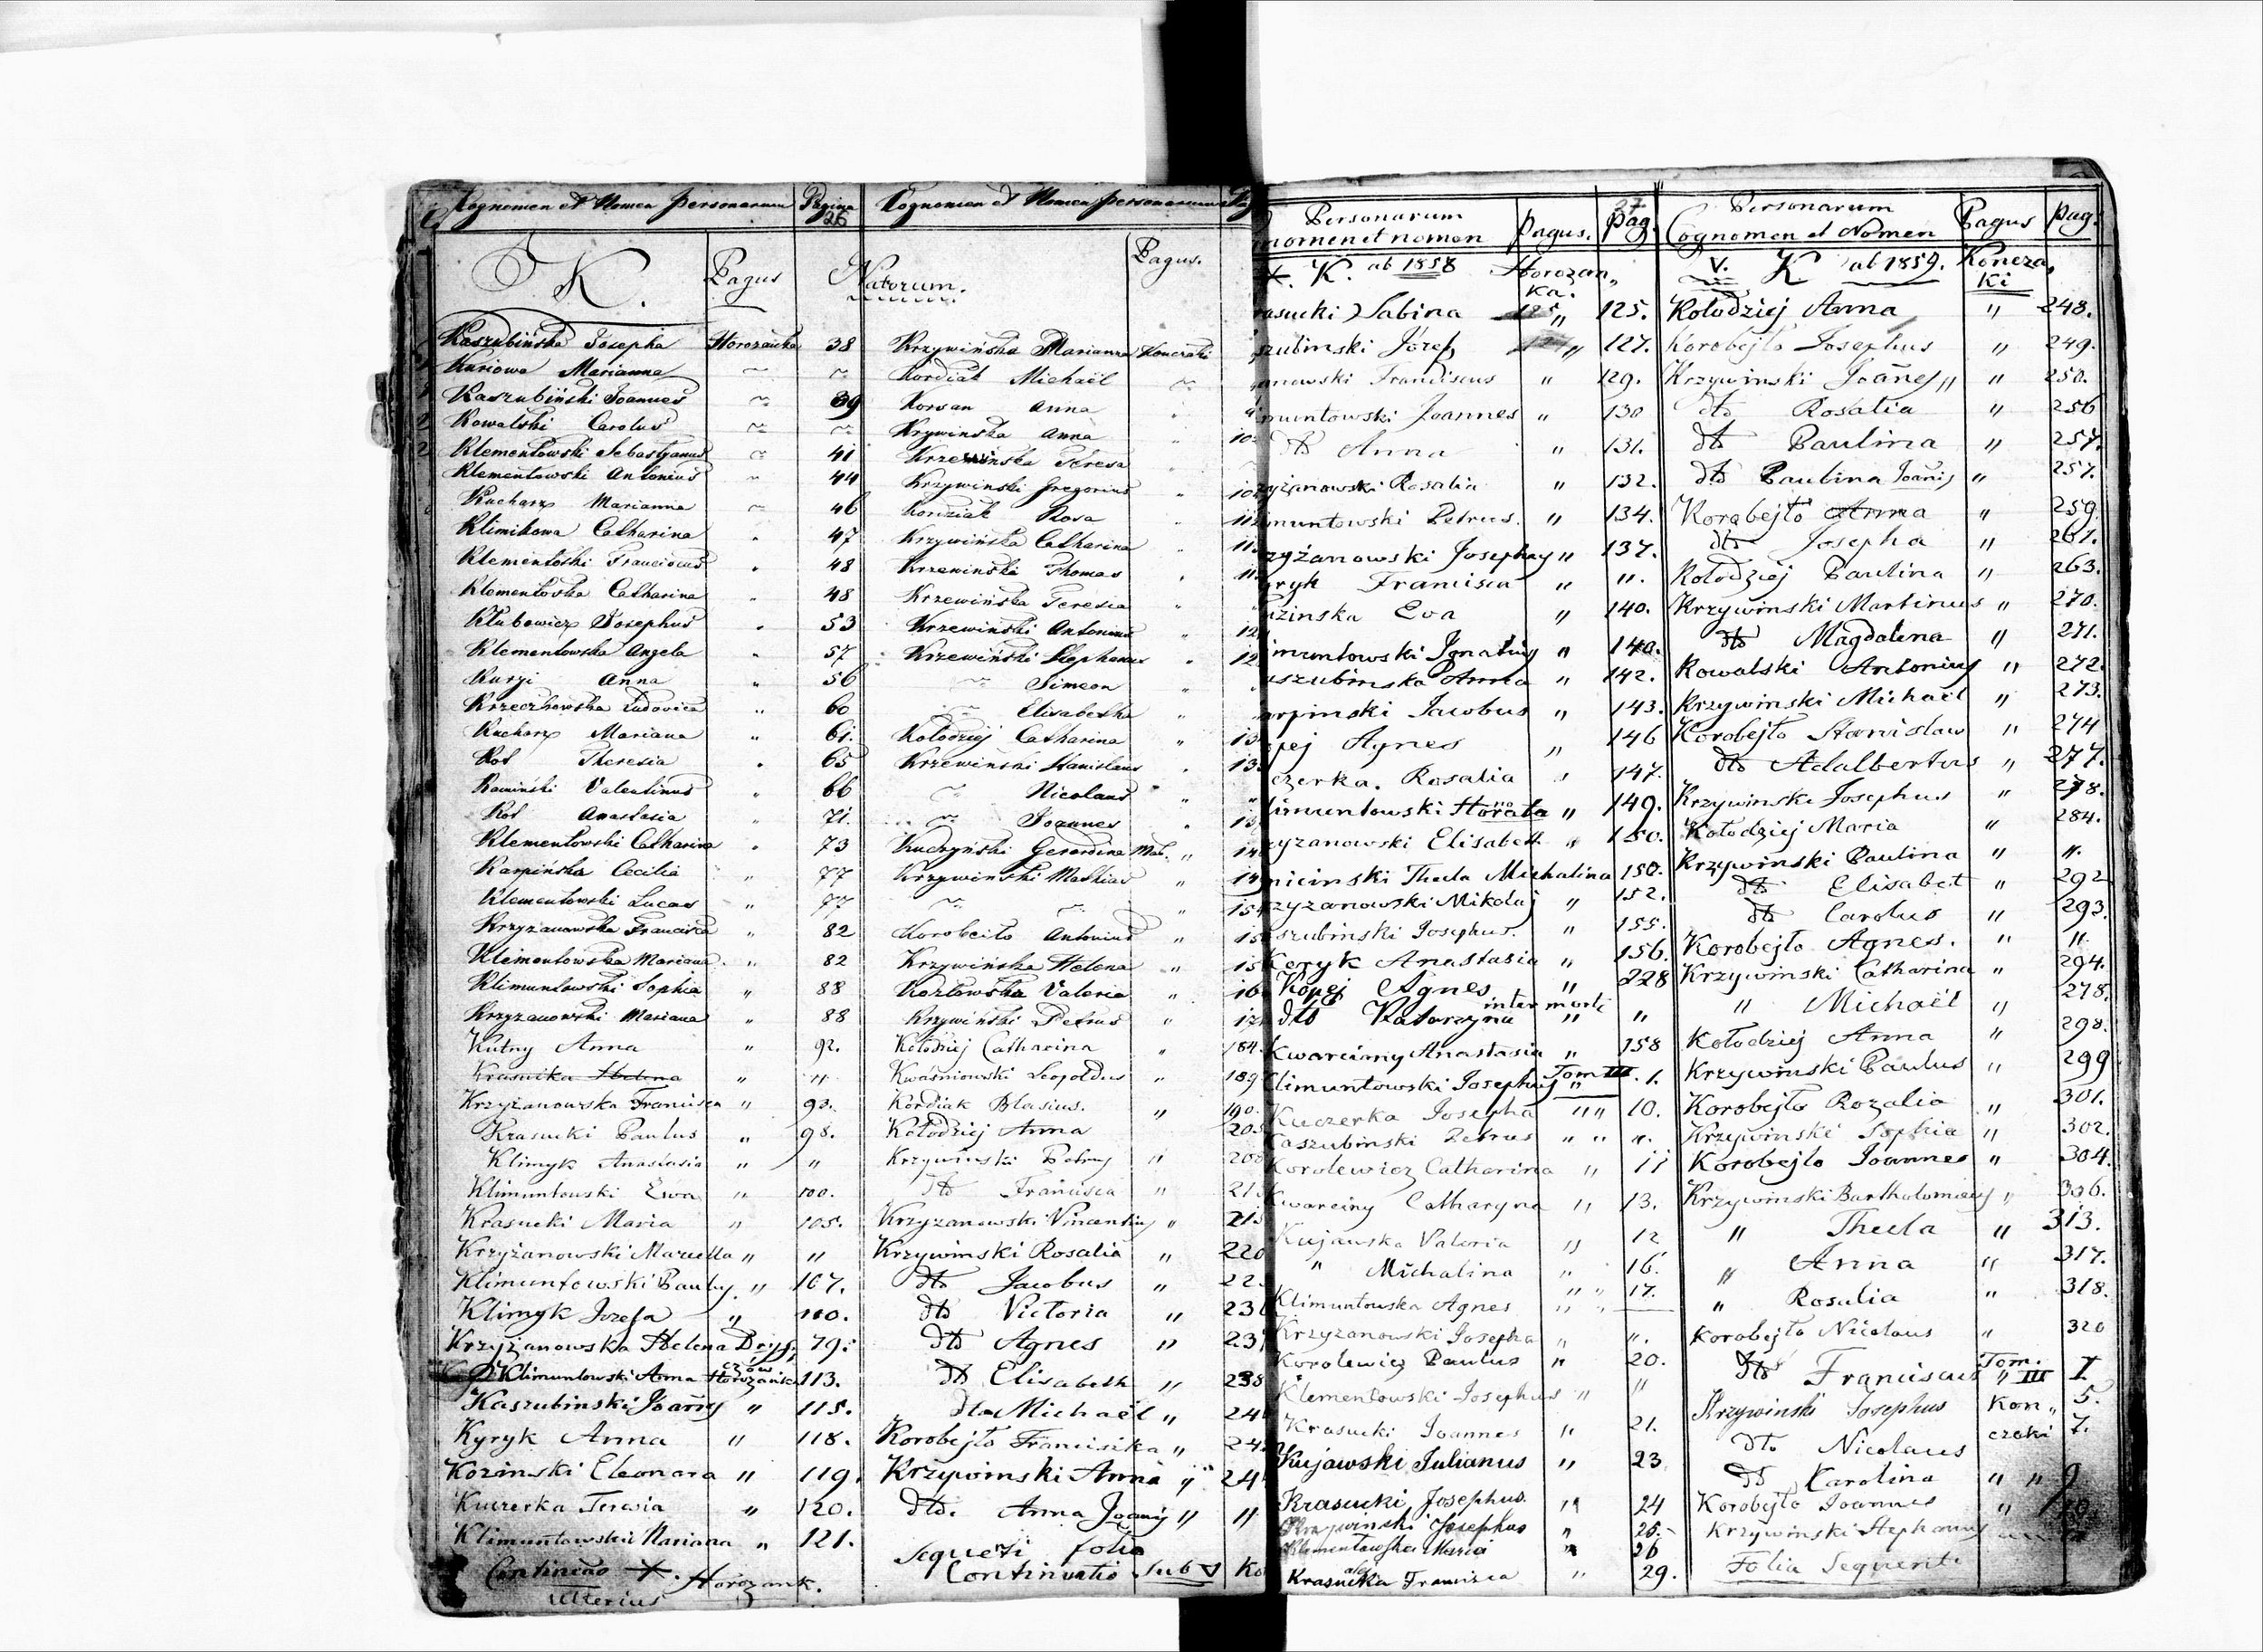 Cognomen et Nomen personarum Pagina 26
K. Pagus
Kaszubińska Josepha Horożanka 38
Kuriowa Marianna ~ ~
Kaszubiński Joannes ~ 39
Kowalski Carolus ~ ~
Klementowski Sebastyanus ~ 41
Klementowski Antonius ~ 44
Kucharz Marianna ~ 46
Klimikowa Catharina " 47
Klementoski Franciscus " 48
Klementoska Catharina " 48
Klubowicz Josephus " 53
Klementowska Angela " 57
Kurzi Anna " 56
Krzeczkowska Ludovica " 60
Kucharz Mariana " 61.
Kot Theresia " 65
Kamiński Valentinus " 66
Kot Anastasia " 71.
Klementowski Catharina " 73
Karpińska Cecilia " 77
Klementowski Lucas " 77
Krzyzanowska Francisca " 82
Klementowska Mariana " 82
Klimuntowski Sophia " 88
Krzyzanowski Mariana " 88
Kutny Anna " 92.
Krasnika Helena " "
Krzyżanowska Francisca " 93.
Krasucki Paulus " 98.
Klimyk Anastasia " "
Klimuntowski Ewa " 100.
Krasucki Maria " 105.
Krzyżanowski Marcella " "
Klimuntowski Paulus " 107.
Klimyk Jozefa " 110.
Krzyżanowska Helena 79.
Klimuntowski Anna Horożanka 113.
Kaszubinski Joannes " 115.
Kyryk Anna " 118.
Kozinski Eleonara " 119.
Kuczerka Teresia " 120.
Klimuntowski Mariana " 121.
Continuatio Horozank.
ulterius
Cognomen et Nomen personarum
Natorum. Pagus.
Krzywińska Marianna Konczaki
Kordiak Michaël ~
Korsan Anna "
Krywinska Anna "
Krzewińska Teresa "
Krzywinski Gregorius "
Kordziak Rosa "
Krzywińska Catharina "
Krzewinski Thomas "
Krzewińska Teresia "
Krzewiński Antonius "
Krzewiński Stephanus "
~ Simeon "
~ Elisabetha "
Kołodziej Catharina "
Krzewinski Stanislaus "
~ Nicolaus "
~ Joannes "
Kuczyński Gerardina "
Krzywinski Mathias "
~ ~ "
Korobeiło Antonius "
Krzywińska Helena "
Kozłowska Valeria "
Krzywiński Petrus "
Kołodziej Catharina " 184.
Kwaśniowski Leopoldus " 189
Kordiak Blasius. " 190.
Kołodziej Anna
Krzywinski Petrus "
dto Francisca "
Krzyzanowski Vincentius "
Krzywinski Rosalia " 220
dto Jacobus "
dto Victoria "
dto Agnes "
dto Elisabeth " 238
dto Michaël "
Korobejło Francisika "
Krzywinski Anna "
dto. Anna Joannis " "
sequenti folio
Continuatio sub V
Personarum
nomen et nomen pagus. pag. 27
K. ab 1858 Horozanka.
asucki Sabina " 125.
szubinski Józef " 127.
anowski Franciscus " 129.
muntowski Joannes " 130
dto Anna " 131.
zyżanowski Rosalia " 132.
muntowski Petrus. " 134.
zyżanowski Josepha " 137.
yryk Francisca " "
zinska Eva " 140.
imuntowski Ignatius " 140.
aszubinska Anna " 142.
arpinski Jacobus " 143.
pej Agnes " 146
czerka. Rosalia " 147.
limuntowski Honorata " 149.
zyzanowski Elisabeth " 150.
Thecla Michalina 150.
zyzanowski Mikolaj " 152.
szubinski Josephus. " 155.
Keryk Anastasia " 156.
Kopej Agnes " 228
inter morti
dto Katarzyna " "
Kwarciany Anastasia " 158
Klimuntowski Josephus Tom III. 1.
Kuczerka Josepha " " 10.
Kaszubinski Petrus " " ".
Korolewicz Catharina " 11
Kwarciny Catharyna " 13.
Kujawska Valeria " 12
" Michalina " 16.
Klimuntowska Agnes " " 17.
Krzyzanowski Josepha " ".
Korolewicz Paulus " 20.
Klementowski Josephus " "
Krasucki Joannes " 21.
Kujawski Iulianus " 23
Krasucki Josephus. " 24
Krzywinski Josephus " 25.
Klementowska Maria " 26
Krasnicka Francisca " 29.
Personarum
Cognomen et Nomen Pagus pag.
V. K ab 1859. Koncza,
ki
Kołodziej Anna " 248.
Korobejło Josephus " 249.
Krzywinski Joanes " 250.
dto Rosalia " 256
dto Paulina " 257.
dto Paulina Joanis " 257.
Korobejło Anna " 259.
dto Josepha " 261.
Kołodziej Paulina " 263.
Krzywinski Martinus " 270.
dto Magdalena " 271.
Kowalski Antonius " 272.
Krzywinski Michaël " 273.
Korobejło Stanislaw " 274
dto Adalbertus " 277.
Krzywinski Josephus " 278.
Kołodziej Maria " 284.
Krzywinski Paulina " ".
dto Elisabet " 292
dto Carolus " 293.
Korobejło Agnes. " ".
Krzywinski Catharina " 294.
" Michaël " 278.
Kołodziej Anna " 298.
Krzywinski Paulus " 299
Korobejło Rozalia " 301.
Krzywinski Sophia " 302.
Korobejło Joannes " 304.
Krzywinski Bartholomieus " 306.
" Thecla " 313.
" Anna " 317.
" Rosalia " 318.
Korobejło Nicolaus " 320
dto Franciscus Tom. III I
Krzywinski Josephus Kon, 5.
dto Nicolaus czaki 7.
dto Karolina " " 9
Korobejło Joannes "
Krzywinski Stephanus
Folia Sequenti